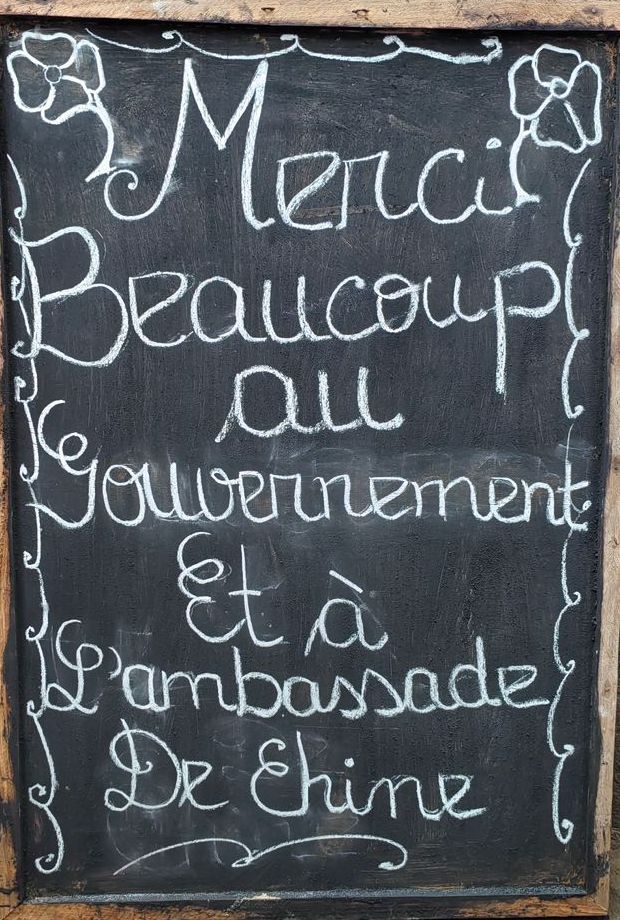 Merci
Beaucoup
au
Gouvernement
Et à
L'ambassade
De Chine